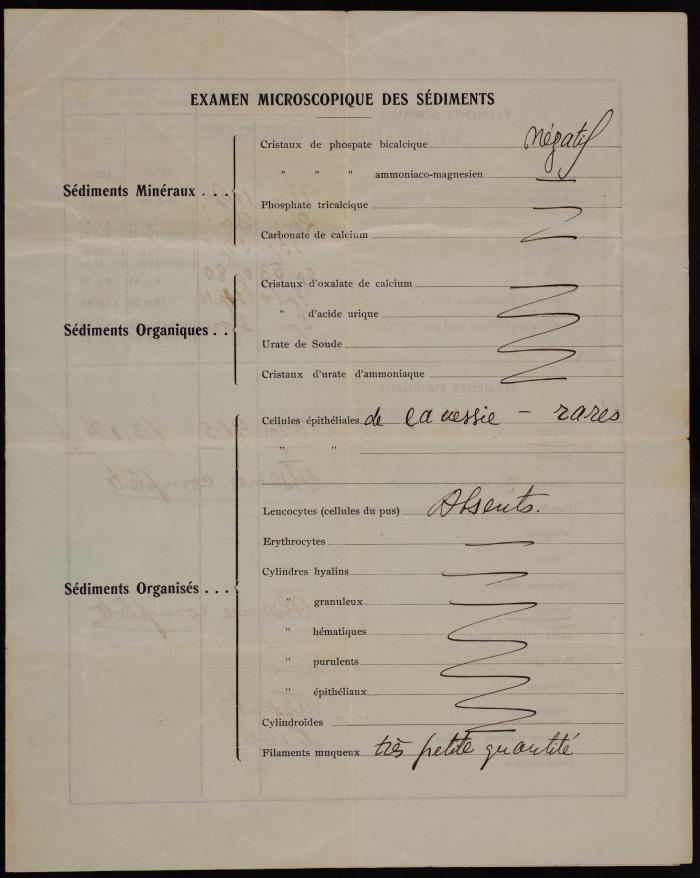 EXAMEN MICROSCOPIQUE DES SÉDIMENTS
Sédiments Minéraux . . .
Cristaux de phospate bicalcique négatif
" " " ammoniaco-magnesien —
Phosphate tricalcique
Carbonate de calcium
Sédiments Organiques . .
Cristaux d'oxalate de calcium
" d'acide urique
Urate de Soude
Cristaux d'urate d'ammoniaque
Sédiments Organisés . . .
Cellules épithéliales de la vessie — rares
" "
Leucocytes (cellules du pus) Absents.
Erythrocytes —
Cylindres hyalins
" granuleux
" hématiques
" purulents
" épithéliaux
Cylindroïdes
Filaments muqueux très petite quantité